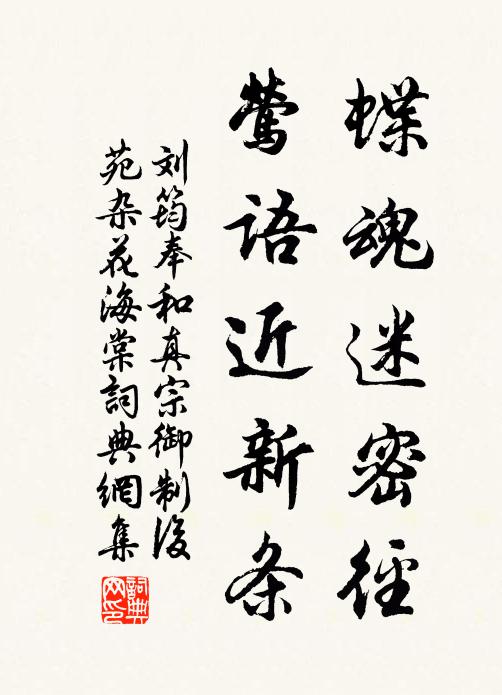 蝶魂迷密径
莺语近新条
刘筠奉和真宗御制後
苑杂花海棠詞典網集
詞典網印